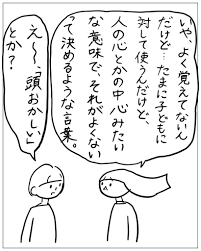 いや、よく覚えてないん
だけど…たまに子どもに
対して使うんだけど、
人の心とかの中心みたい
な意味で、それがよくない
って決めるような言葉。
え〜、「頭おかしい」
とか?